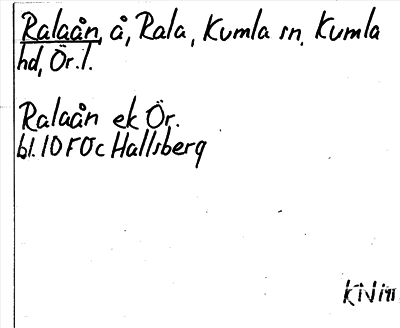 Ralaån, å, Rala, Kumla sn, Kumla
hd, Ör. l.
Ralaån ek Ör.
bl. 10 F 0c Hallsberg